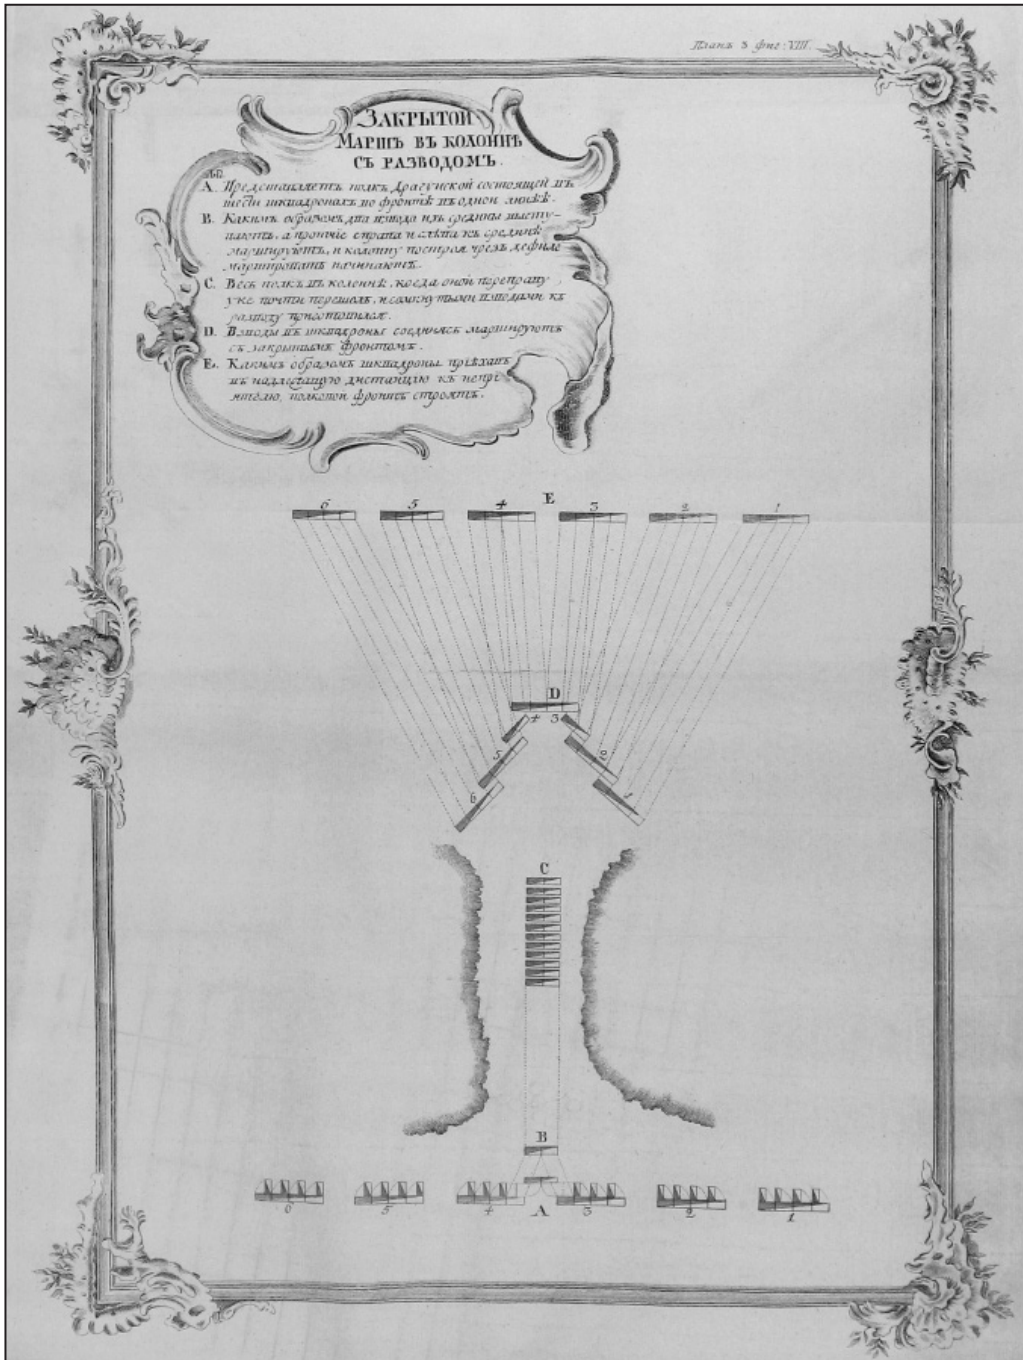 Планъ 3 фиг: VIII.
ЗАКРЫТОЙ
МАРШЪ ВЪ КОЛОННѢ
СЪ РАЗВОДОМЪ.
A. Представляетъ полкъ Драгунской состоящей въ
шести шквадронахъ во фронтѣ въ одной линѣѣ.
B. Какимъ образомъ два взвода изъ средины высту-
паютъ, а протчіе справа и слѣва къ срединѣ
маршируютъ, и колонну построя чрезъ дефиле
маршировать начинаютъ.
C. Весь полкъ въ колоннѣ, когда оной переправу
уже почти перешолъ, и сомкнутыми взводами къ
разводу приготовился.
D. Взводы въ шквадроны соединясь маршируютъ
съ закрытымъ фронтомъ.
E. Какимъ образомъ шквадроны приѣхавъ
въ надлежащую дистанцію къ непрі-
ятелю, полковой фронтъ строятъ.
E
6 5 4 3 2 1
D
4 3
5 2
6 1
C
B
6 5 4 A 3 2 1